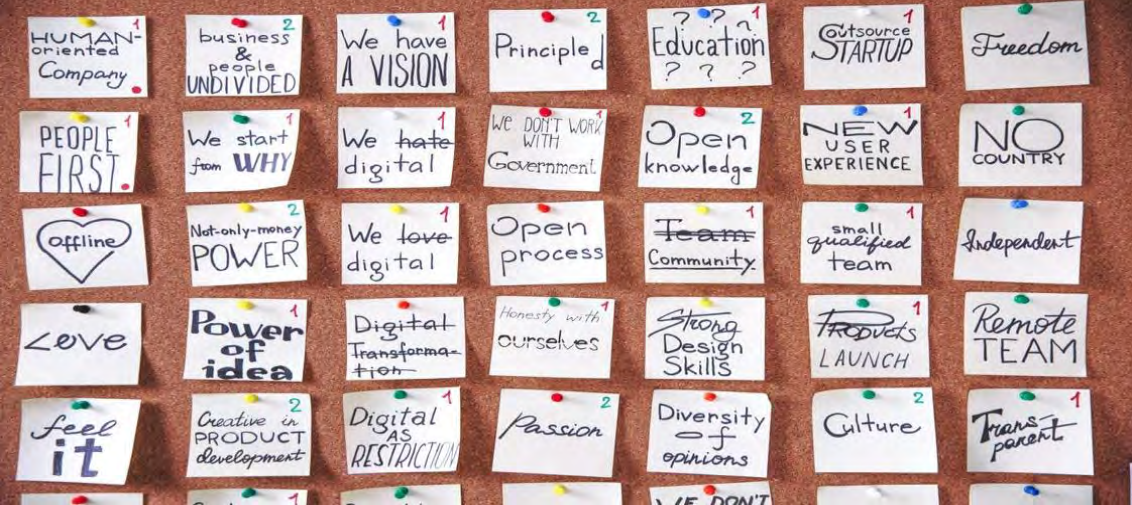 HUMAN-
oriented
Company
1
business
&
people
UNDIVIDED
2
We have
A VISION
1
Principled
2
? ? ?
Education
? ? ?
1
Outsource
STARTUP
1
Freedom
PEOPLE
FIRST.
1
We start
from WHY
1
We hate
digital
1
We DON'T WORK
WITH
Government
1
Open
knowledge
2
NEW
USER
EXPERIENCE
1
NO
COUNTRY
offline
Not-only-money
POWER
2
We love
digital
1
Open
process
Team
Community.
1
small
qualified
team
1
Independent
Love
Power
of
idea
1
Digital
Transforma-
tion
Honesty with
ourselves
1
Strong
Design
Skills
Products
LAUNCH
1
Remote
TEAM
feel
it
Creative in
PRODUCT
development
2
Digital
AS
RESTRICTION
1
Passion
2
Diversity
of
opinions
Culture
2
Trans-
parent
1
1
WE DON'T